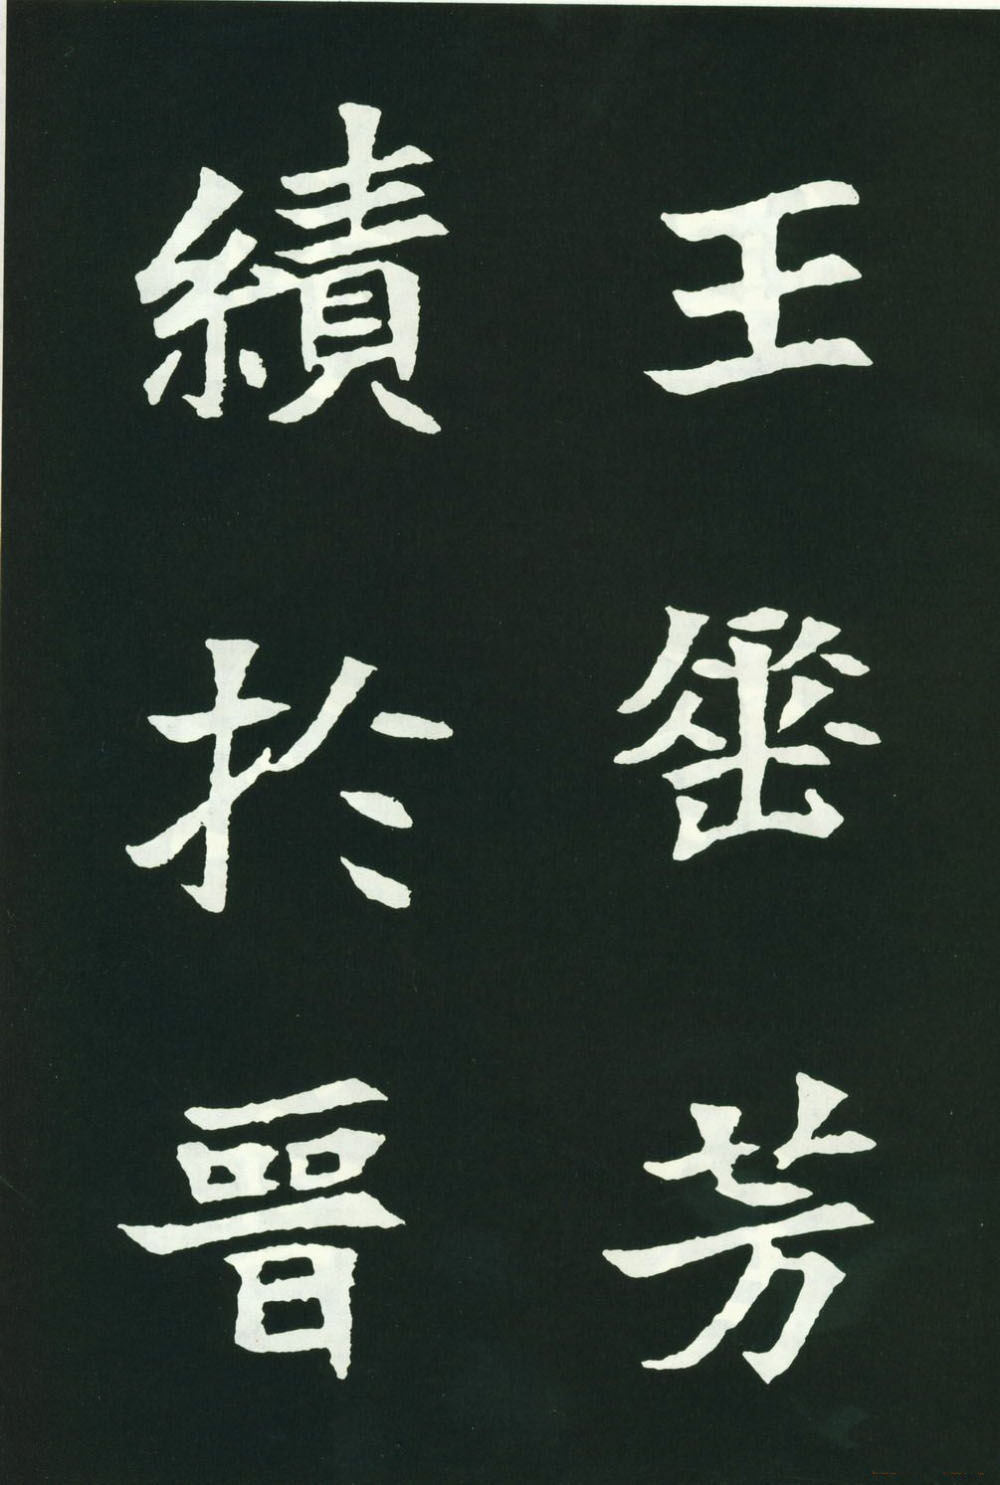 王垂芳
績於晉